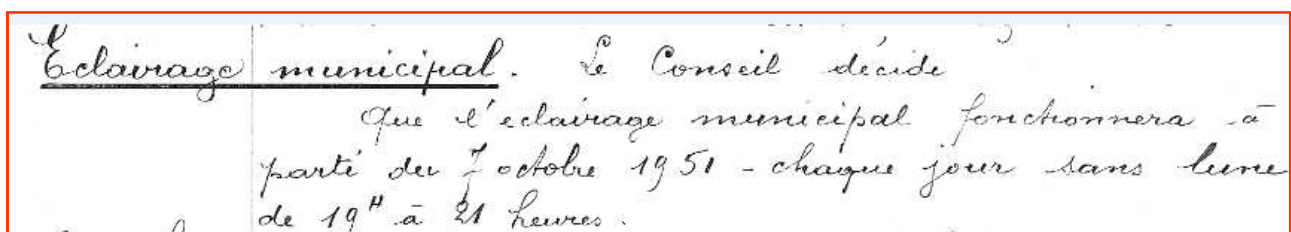 Eclairage municipal. Le Conseil décide
Que l'eclairage municipal fonctionnera à
parti du 7 octobre 1951 - chaque jour sans lune
de 19H à 21 heures.